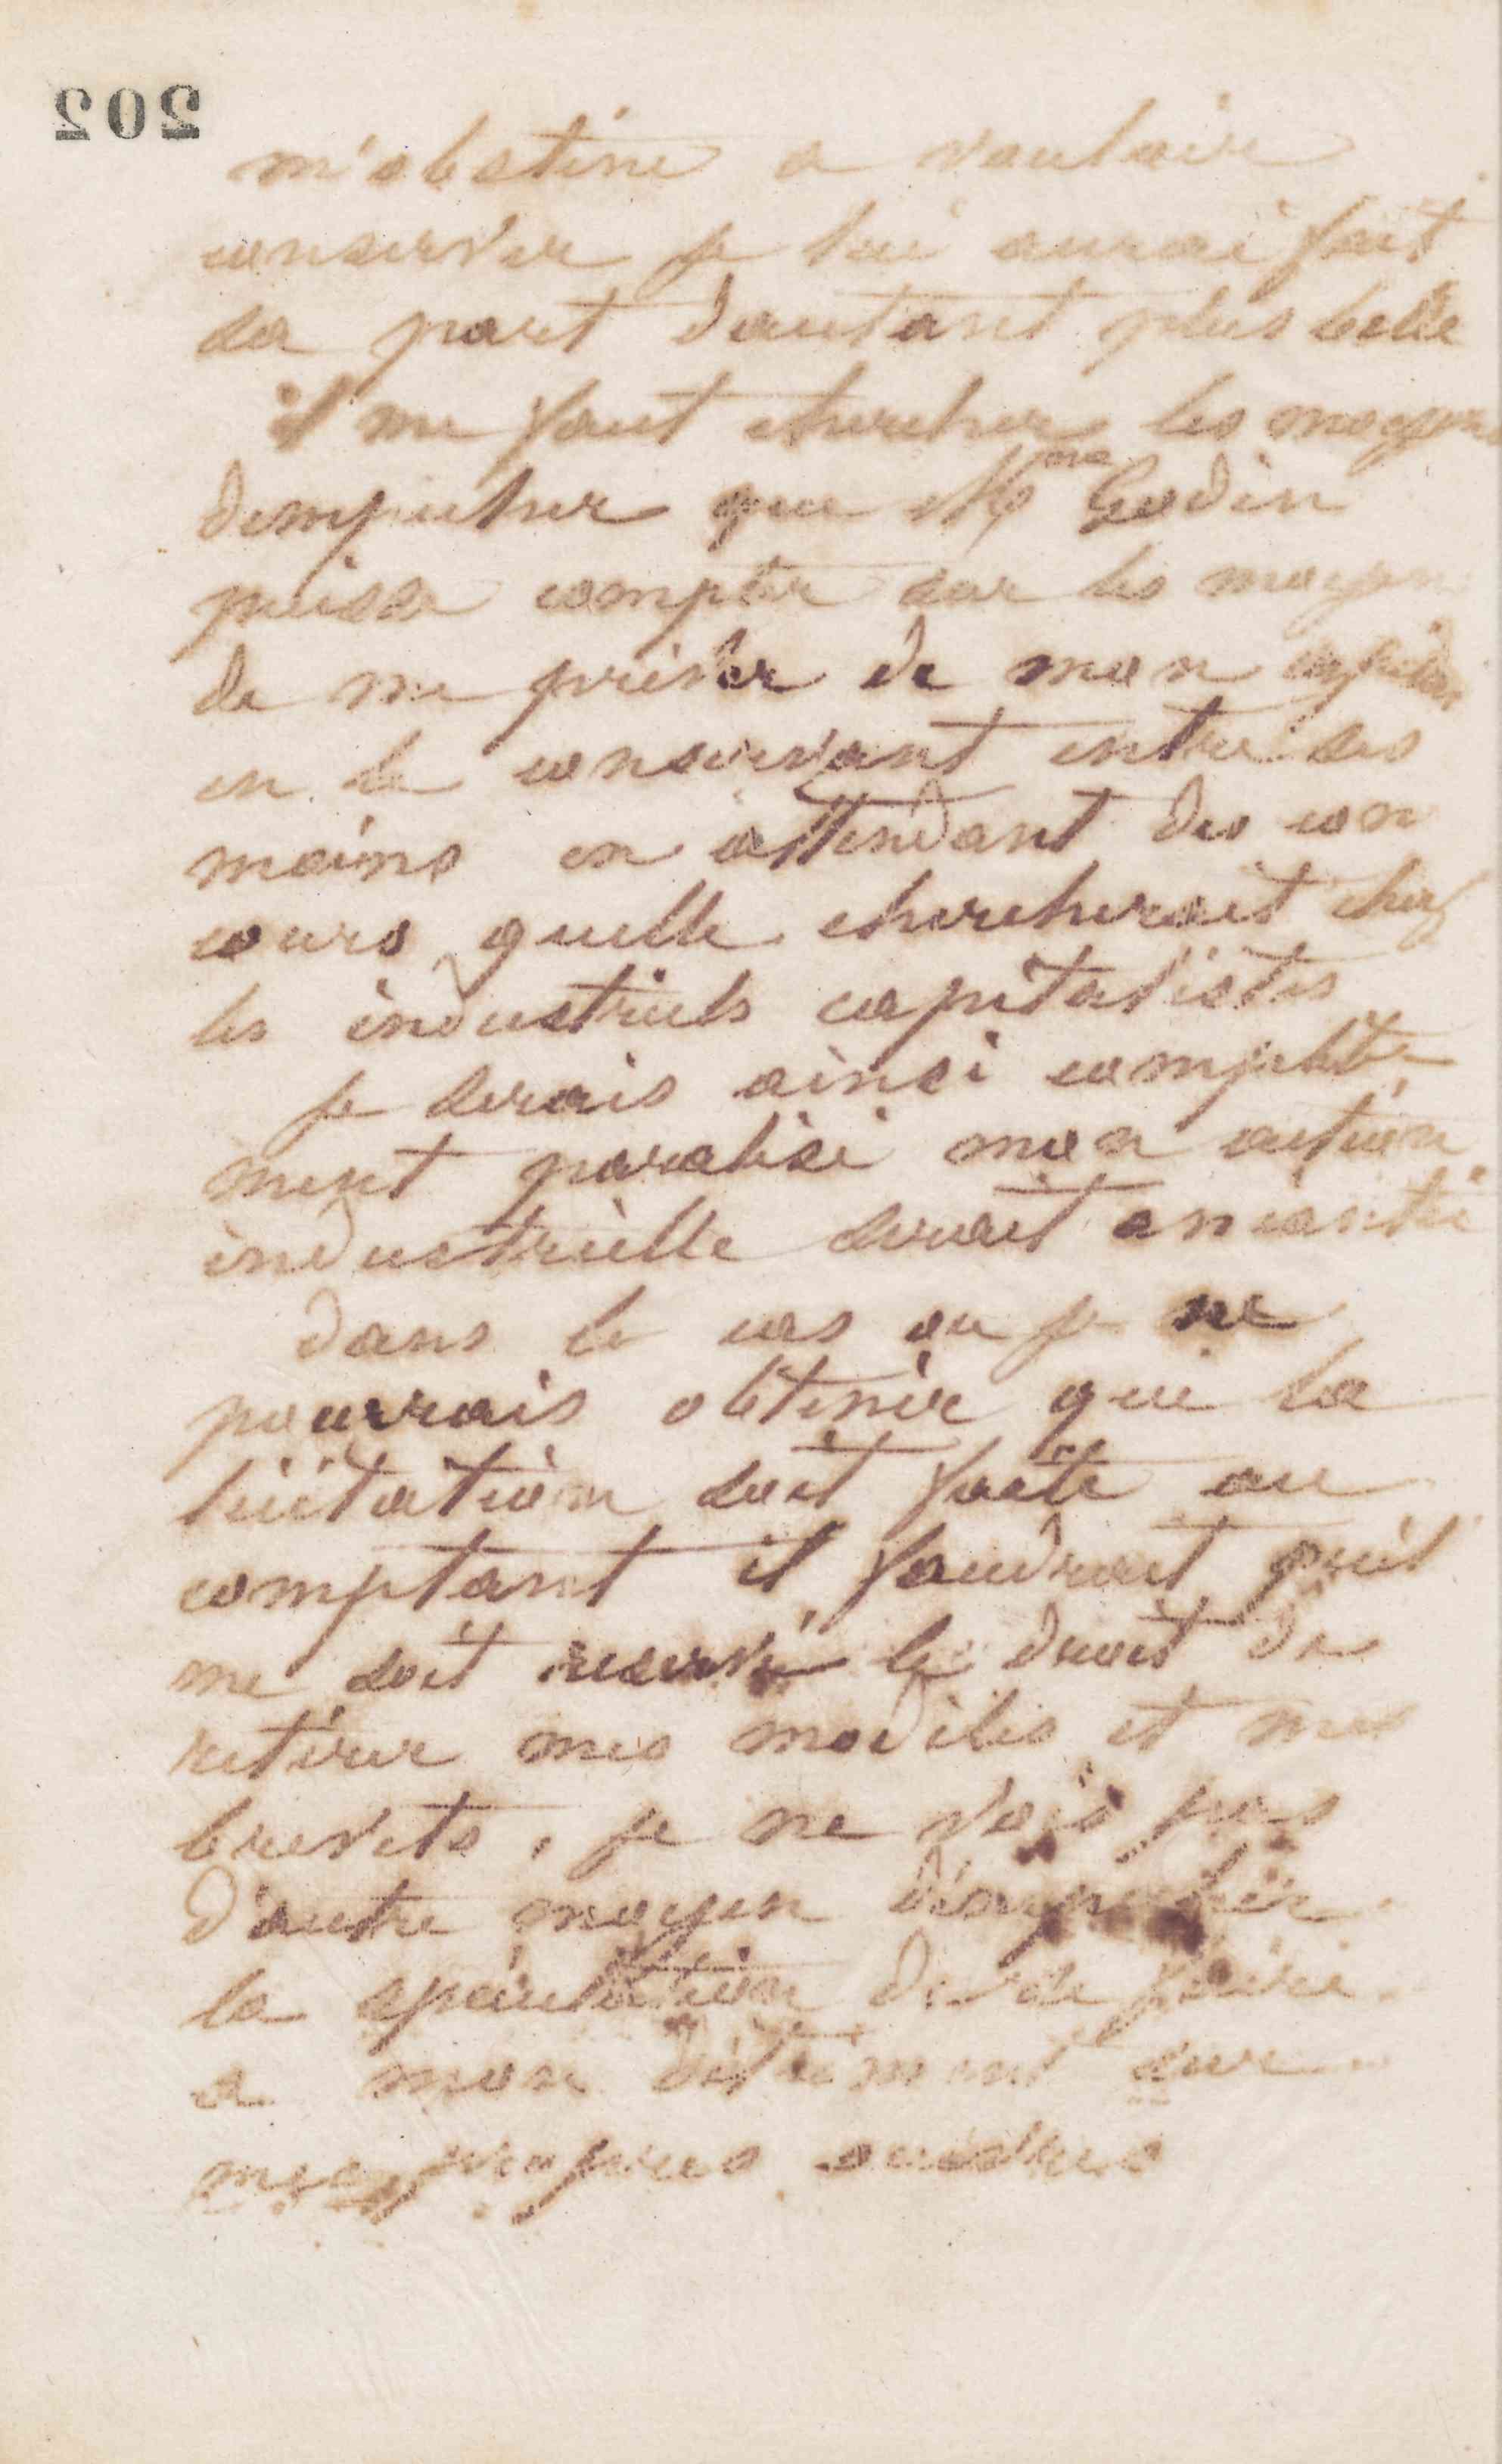 202
m'obstine a vouloir
conserver je lui aurai fait
sa part dautant plus belle
il me faut chercher les moyens
dempecher que Mme Godin
puisse compter sur les moyens
de me priver de mon capital
en le conservant entre ses
mains en attendant des con
cours quelle chercherait chez
les industriels capitalistes
je serais ainsi complete
ment paralisé mon action
industrielle serait aneantie
dans le cas ou je ne
pourrais obtenir que la
licitation soit faite au
comptant il faudrait quil
me soit reservé le droit de
retirer mes modèles et mes
brevets, je ne vois pas
d'autre moyen d'empecher
la speculation de se faire
a mon detriment sur
mes propres oeuvres